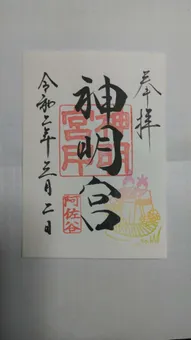 奉拝
神明宮
神明宮印
阿佐谷
令和二年三月二日